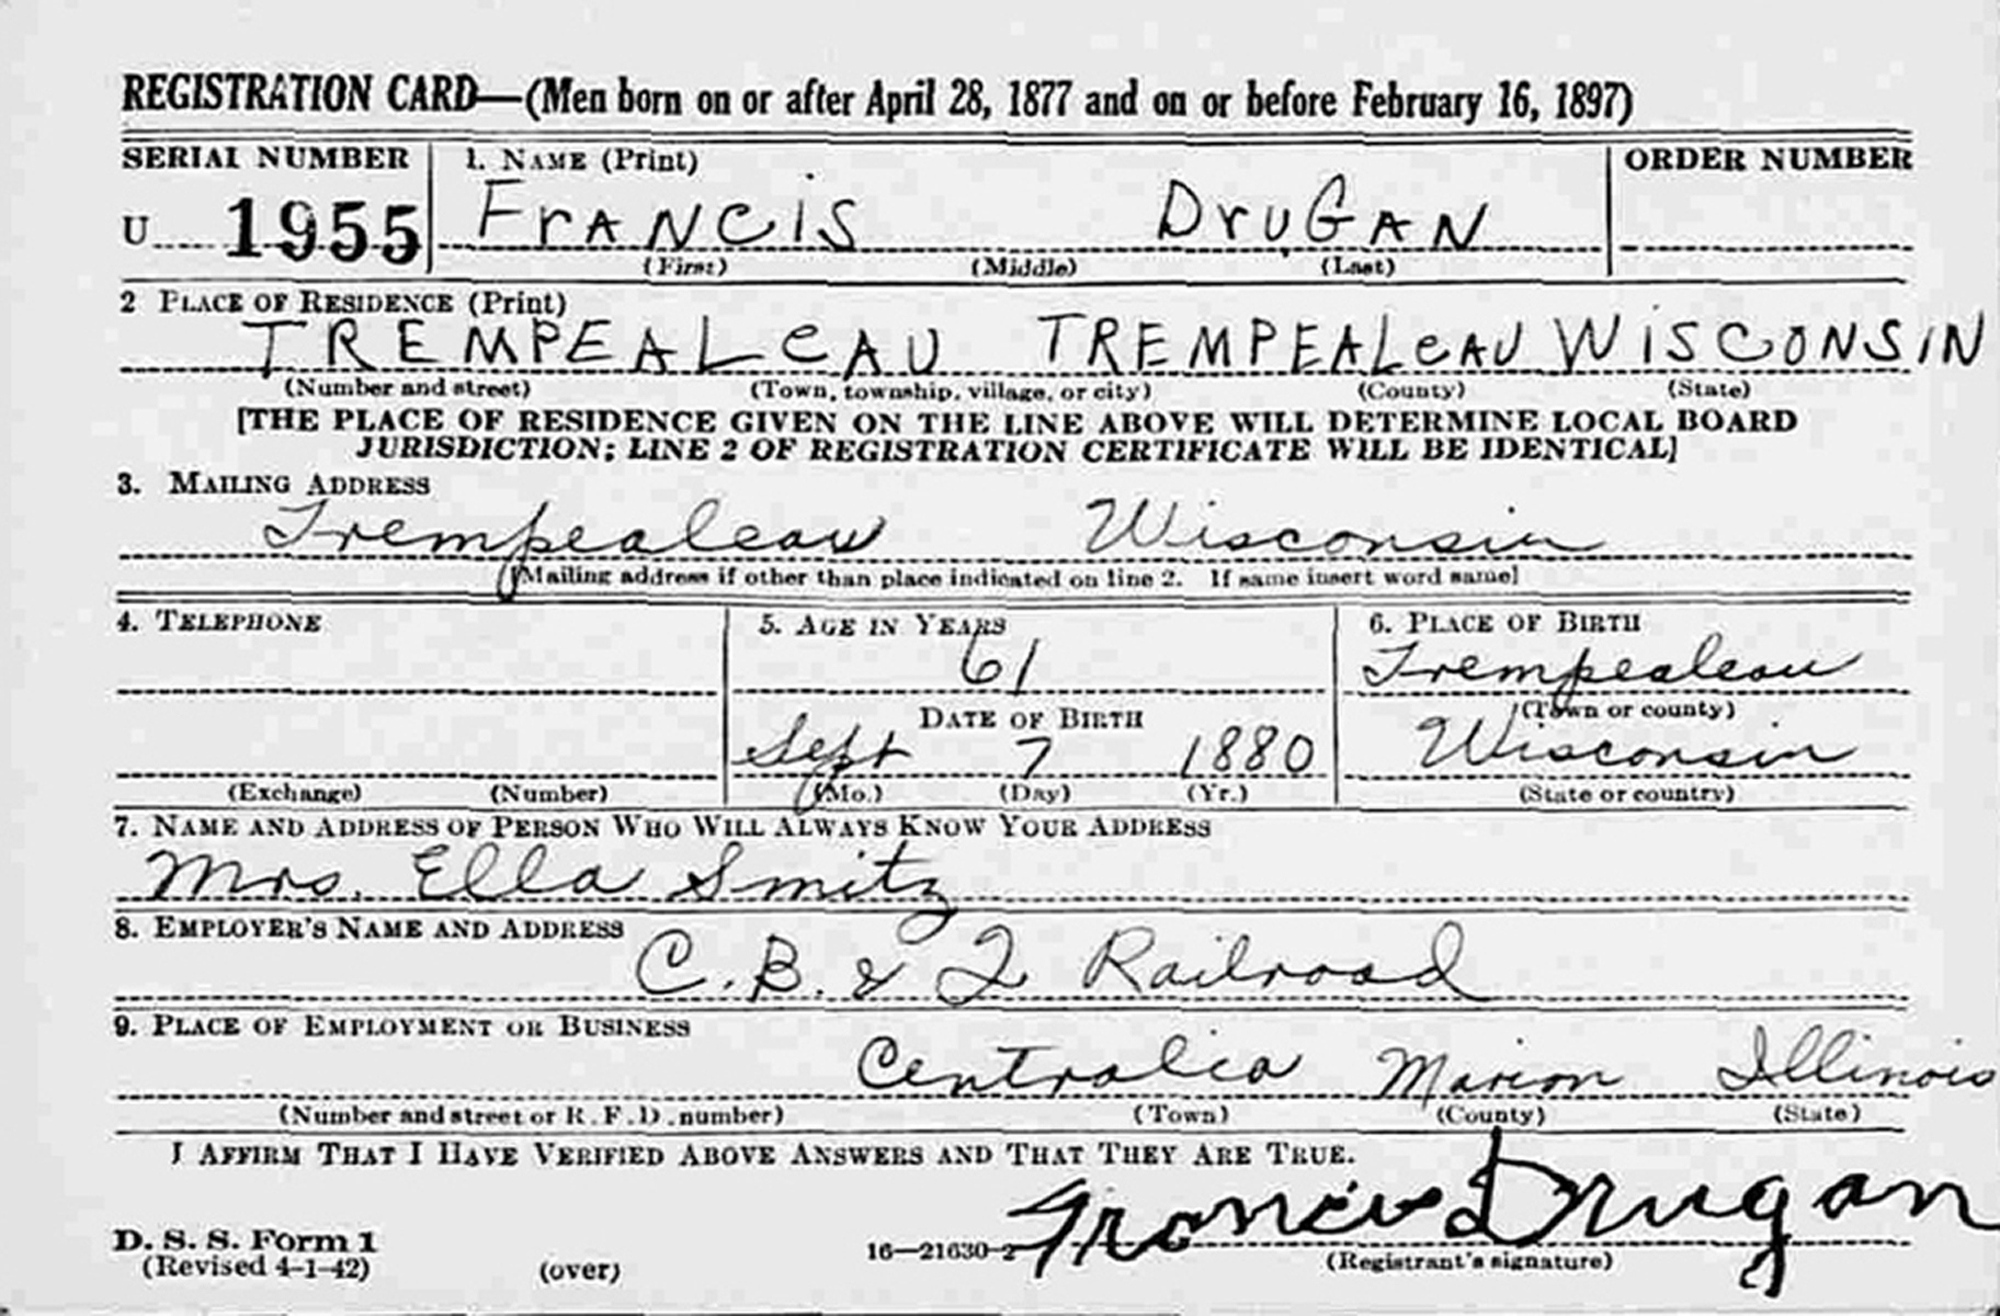 REGISTRATION CARD—(Men born on or after April 28, 1877 and on or before February 16, 1897)
SERIAL NUMBER 1. NAME (Print) ORDER NUMBER
U 1955 FrANCiS DruGAN
(First) (Middle) (Last)
2 PLACE OF RESIDENCE (Print)
TREMPEALeAU TREMPEALeAU WiSCONSIN
(Number and street) (Town, township, village, or city) (County) (State)
[THE PLACE OF RESIDENCE GIVEN ON THE LINE ABOVE WILL DETERMINE LOCAL BOARD
JURISDICTION; LINE 2 OF REGISTRATION CERTIFICATE WILL BE IDENTICAL]
3. MAILING ADDRESS
Trempealeau Wisconsin
[Mailing address if other than place indicated on line 2. If same insert word same]
4. TELEPHONE 5. AGE IN YEARS 6. PLACE OF BIRTH
61 Trempealeau
DATE OF BIRTH (Town or county)
Sept 7 1880 Wisconsin
(Exchange) (Number) (Mo.) (Day) (Yr.) (State or country)
7. NAME AND ADDRESS OF PERSON WHO WILL ALWAYS KNOW YOUR ADDRESS
Mrs. Ella Smitz
8. EMPLOYER'S NAME AND ADDRESS
C. B. & Q Railroad
9. PLACE OF EMPLOYMENT OR BUSINESS
Centralia Marion Illinois
(Number and street or R. F. D. number) (Town) (County) (State)
I AFFIRM THAT I HAVE VERIFIED ABOVE ANSWERS AND THAT THEY ARE TRUE.
Francis Drugan
D. S. S. Form 1
(Revised 4-1-42) (over) 16—21630-2 (Registrant's signature)